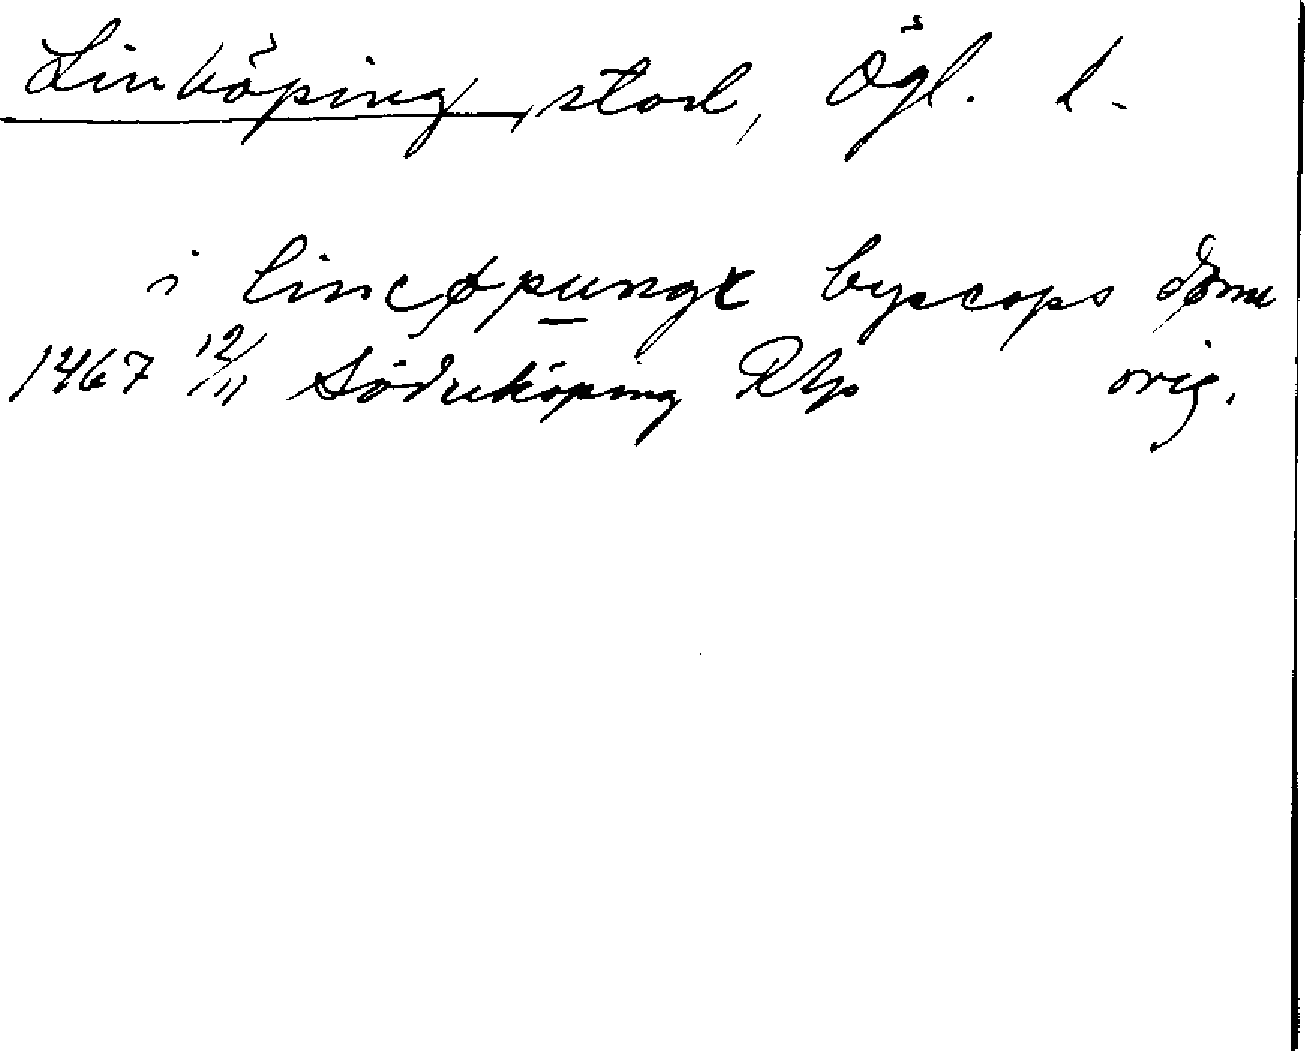 Linköping, stad, Ögl. l.
i lincøpungæ byscops døme
1467 12/11 Söderköping RAp orig.